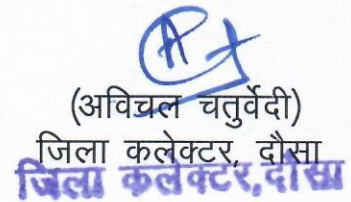 (अविचल चतुर्वेदी)
जिला कलेक्टर, दौसा
जिला कलेक्टर, दौसा